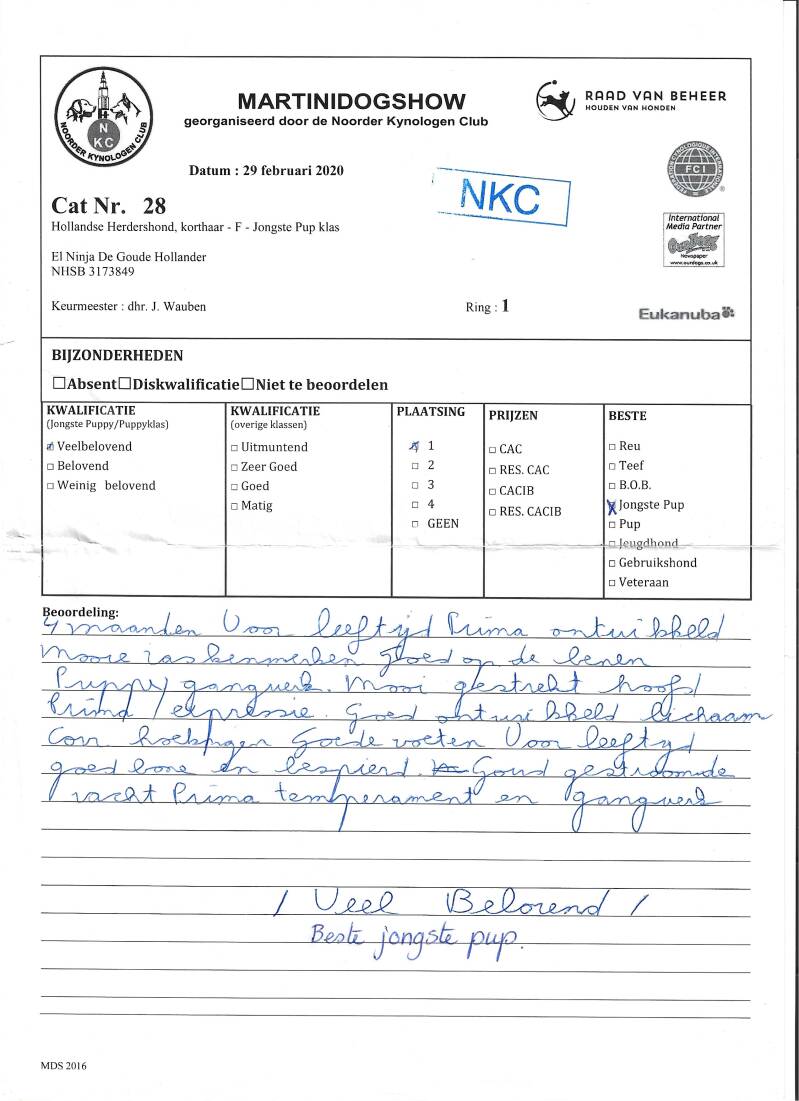 NOORDER KYNOLOGEN CLUB
N
KC
MARTINIDOGSHOW
georganiseerd door de Noorder Kynologen Club
RAAD VAN BEHEER
HOUDEN VAN HONDEN
Datum : 29 februari 2020
FEDERATION CYNOLOGIQUE INTERNATIONALE
FCI
NKC
Cat Nr. 28
Hollandse Herdershond, korthaar - F - Jongste Pup klas
International
Media Partner
OurDogs
Newspaper
www.ourdogs.co.uk
El Ninja De Goude Hollander
NHSB 3173849
Keurmeester : dhr. J. Wauben
Ring : 1
Eukanuba
BIJZONDERHEDEN
☐Absent☐Diskwalificatie☐Niet te beoordelen
KWALIFICATIE
(Jongste Puppy/Puppyklas)
Veelbelovend
Belovend
Weinig belovend
KWALIFICATIE
(overige klassen)
Uitmuntend
Zeer Goed
Goed
Matig
PLAATSING
1
2
3
4
GEEN
PRIJZEN
CAC
RES. CAC
CACIB
RES. CACIB
BESTE
Reu
Teef
B.O.B.
Jongste Pup
Pup
Jeugdhond
Gebruikshond
Veteraan
Beoordeling:
4 maanden Voor leeftijd Prima ontwikkeld
Mooie raskenmerken goed op de benen
Puppy gangwerk. Mooi gestrekt hoofd
Prima expressie. Goed ontwikkeld lichaam
Corr hoekingen Goede voeten Voor leeftijd
goed bone en bespierd. Goud gestroomde
vacht Prima temperament en gangwerk
/ Veel Belovend /
Beste jongste pup.
MDS 2016